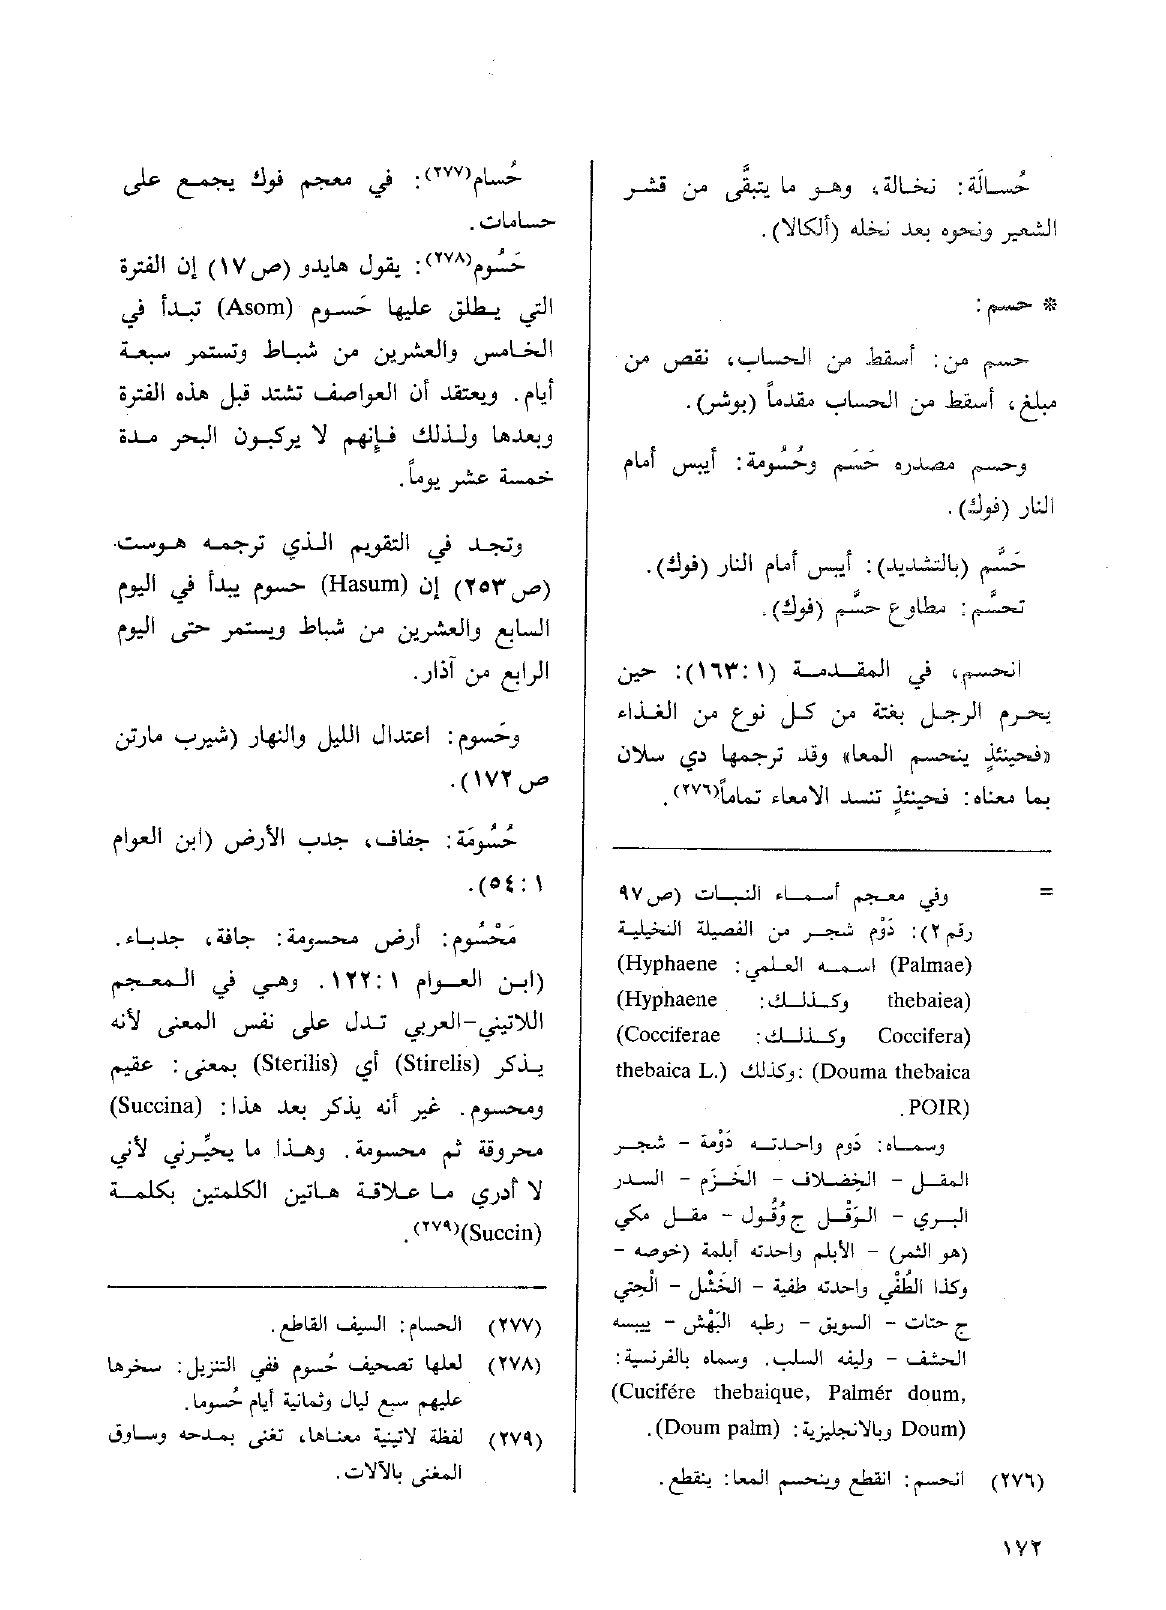 حُسالَة: نخالة، وهو ما يتبقَّى من قشر
الشعير ونحوه بعد نخله (ألكالا).
* حسم:
حسم من: أسقط من الحساب، نقص من
مبلغ، أسقط من الحساب مقدماً (بوشر).
وحسم مصدره حَسُم وحُسُومة: أيبس أمام
النار (فوك).
حَسَّم (بالتشديد): أيبس أمام النار (فوك).
تحسَّم: مطاوع حسَّم (فوك).
انحسم، في المقدمة (١:١٦٣): حين
يحرم الرجل بغتة من كل نوع من الغذاء
«فحينئذٍ ينحسم المعا» وقد ترجمها دي سلان
بما معناه: فحينئذٍ تنسد الامعاء تماماً(٢٧٦).
= وفي معجم أسماء النبات (ص٩٧
رقم ٢): دَوْم شجر من الفصيلة النخيلية
(Palmae) اسمه العلمي: (Hyphaene
thebaiea) وكذلك: (Hyphaene
Coccifera) وكذلك: (Cocciferae
thebaica L.) وكذلك: (Douma thebaica
POIR).
وسماه: دَوم واحدته دَوْمة - شجر
المقل - الخضلاف - الخَزَم - السدر
البري - الوَقْل ج وُقُول - مقل مكي
(هو الثمر) - الأبلم واحدته أبلمة (خوصه -
وكذا الطُفْي واحدته طفية - الخَشْل - الْحتي
ج حتات - السويق - رطبه البَهْش - يبسه
الحشف - وليفه السلب. وسماه بالفرنسية:
(Cucifére thebaique, Palmér doum,
Doum) وبالانجليزية: (Doum palm).
(٢٧٦) انحسم: انقطع وينحسم المعا: ينقطع.
حُسام(٢٧٧): في معجم فوك يجمع على
حسامات.
حَسُوم(٢٧٨): يقول هايدو (ص١٧) إن الفترة
التي يطلق عليها حَسوم (Asom) تبدأ في
الخامس والعشرين من شباط وتستمر سبعة
أيام. ويعتقد أن العواصف تشتد قبل هذه الفترة
وبعدها ولذلك فإنهم لا يركبون البحر مدة
خمسة عشر يوماً.
وتجد في التقويم الذي ترجمه هوست
(ص٢٥٣) إن (Hasum) حسوم يبدأ في اليوم
السابع والعشرين من شباط ويستمر حتى اليوم
الرابع من آذار.
وحَسوم: اعتدال الليل والنهار (شيرب مارتن
ص١٧٢).
حُسُومَة: جفاف، جدب الأرض (ابن العوام
١:٥٤).
مَحْسُوم: أرض محسومة: جافة، جدباء.
(ابن العوام ١:١٢٢. وهي في المعجم
اللاتيني-العربي تدل على نفس المعنى لأنه
يذكر (Stirelis) أي (Sterilis) بمعنى: عقيم
ومحسوم. غير أنه يذكر بعد هذا: (Succina)
محروقة ثم محسومة. وهذا ما يحيِّرني لأني
لا أدري ما علاقة هاتين الكلمتين بكلمة
(Succin)(٢٧٩).
(٢٧٧) الحسام: السيف القاطع.
(٢٧٨) لعلها تصحيف حُسوم ففي التنزيل: سخرها
عليهم سبع ليال وثمانية أيام حُسوما.
(٢٧٩) لفظة لاتينية معناها، تغنى بمدحه وساوق
المغنى بالآلات.
١٧٢